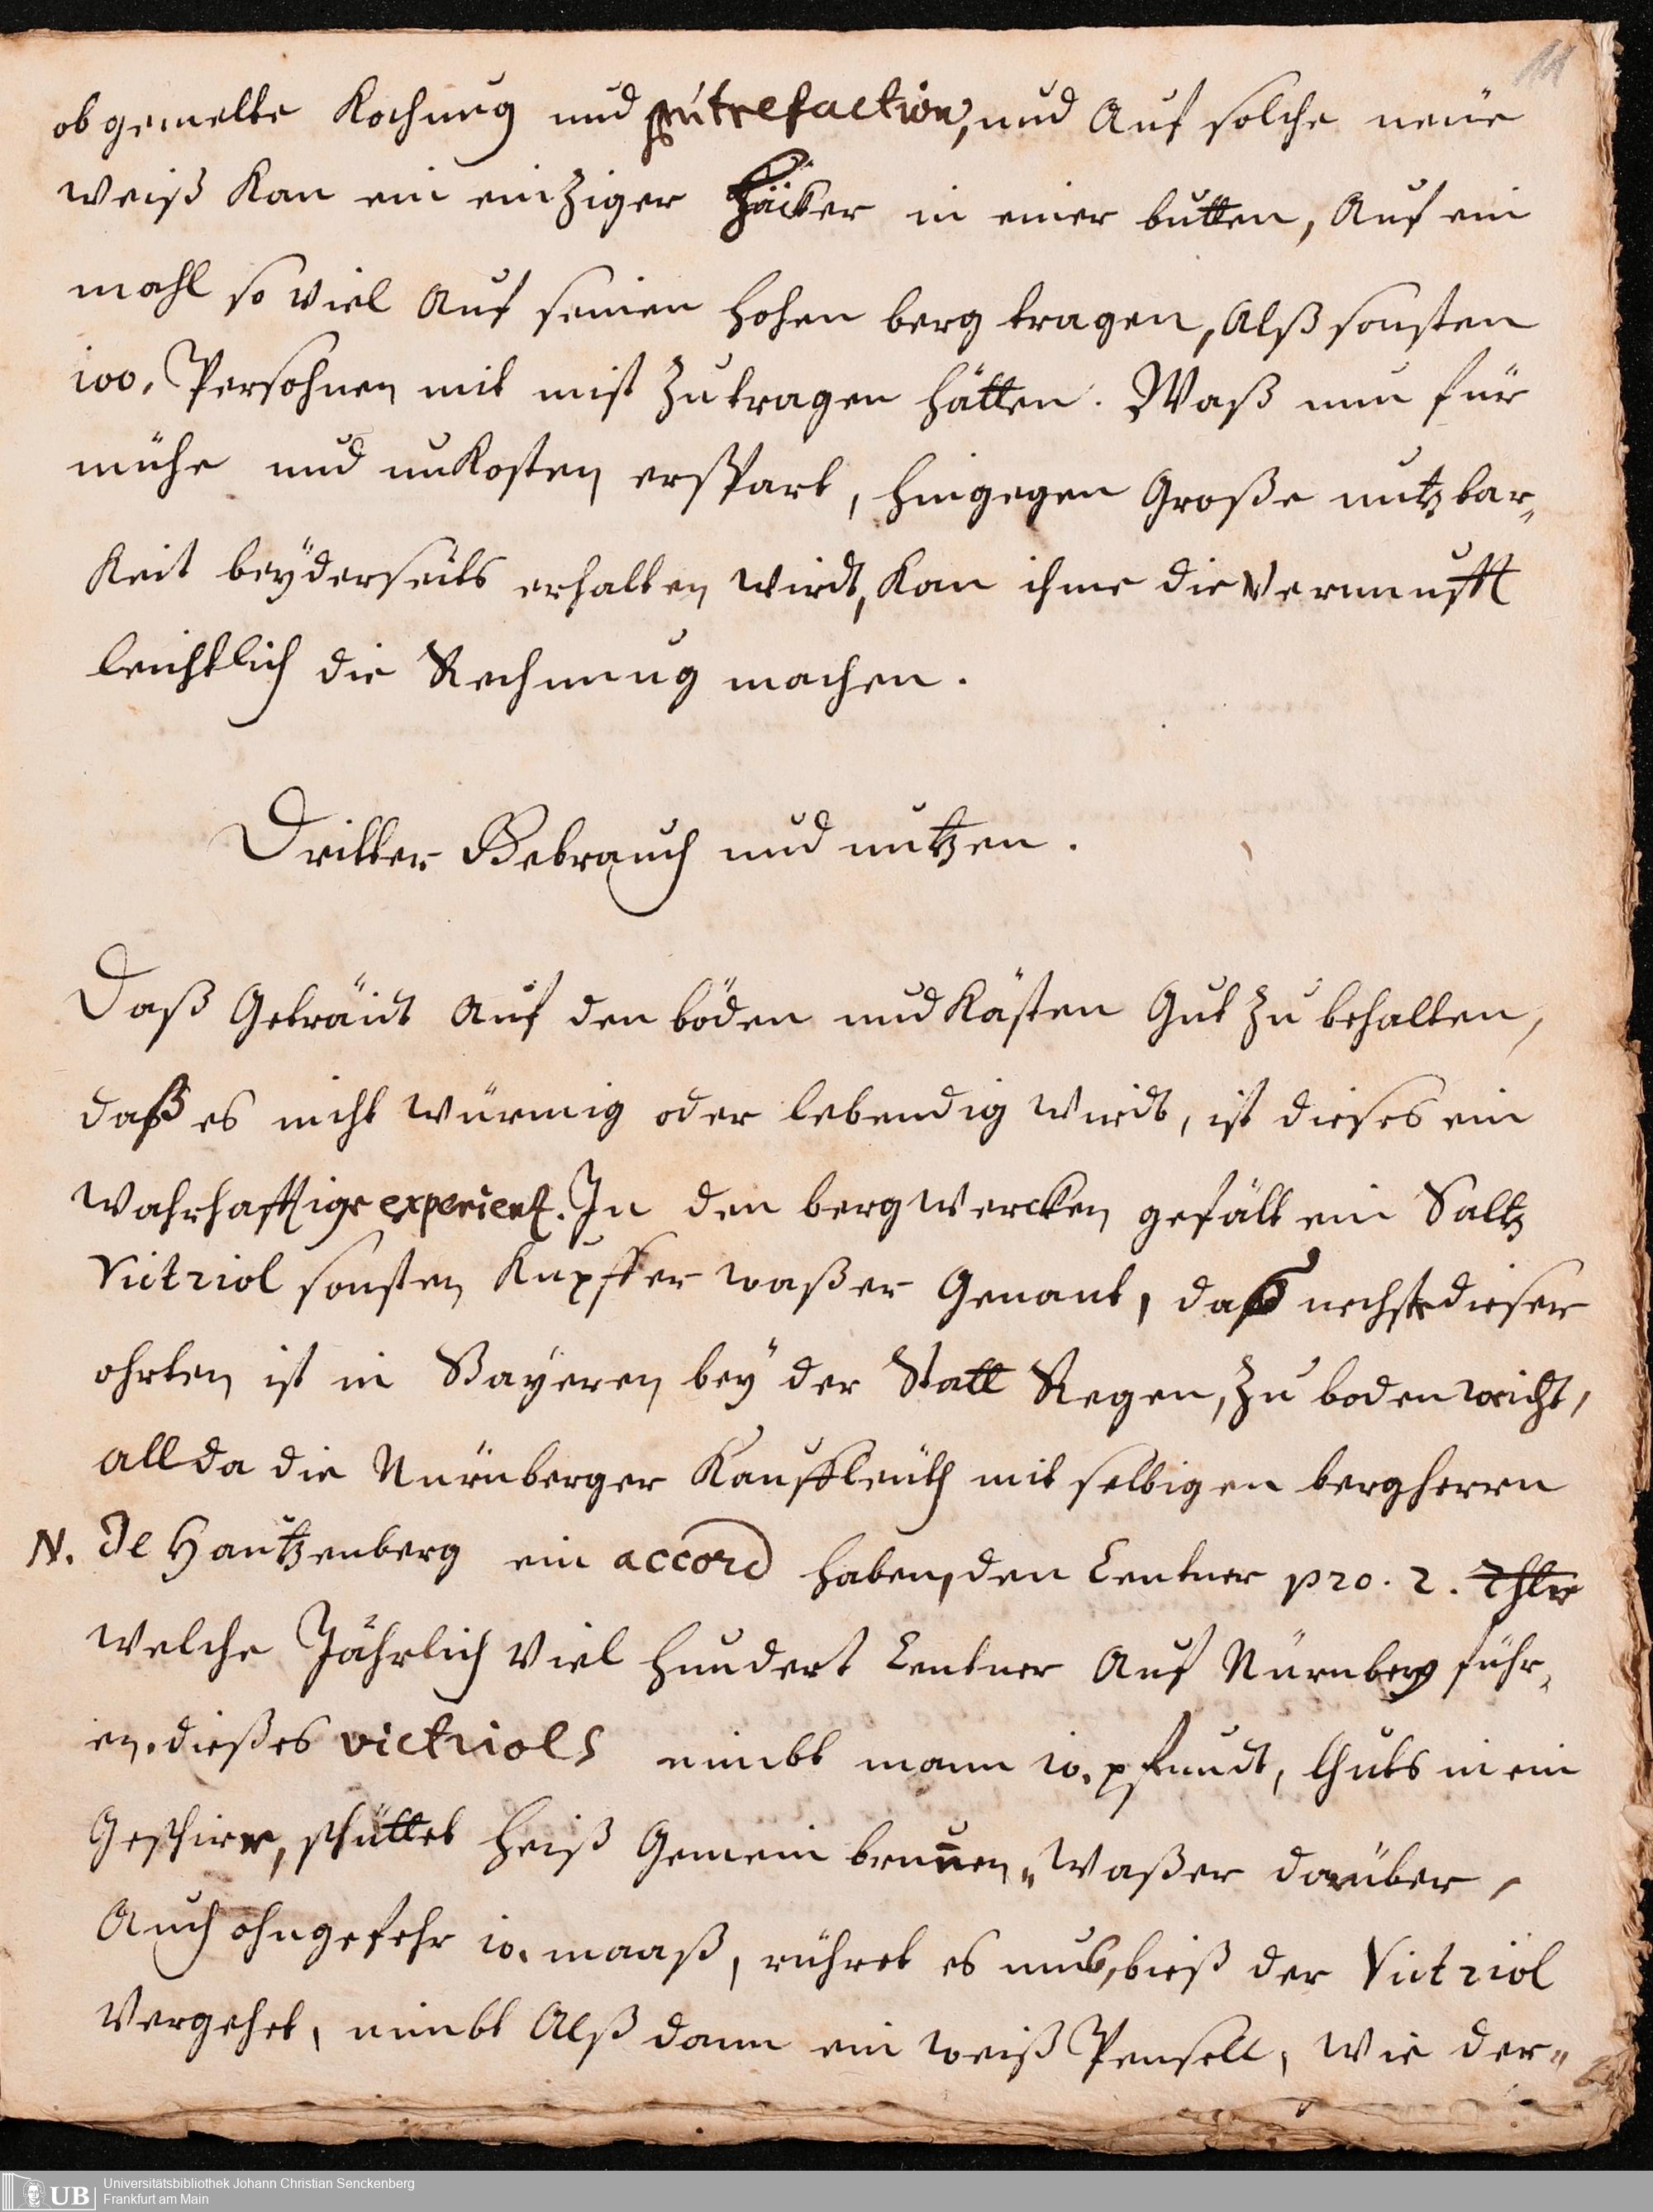 11
ob gemelte Kochung und putrefaction, und Auf solche neüe
weiß Kan ein einziger Häcker in einer butten, Auf ein
mahl so Viel Auf seinen hohen berg tragen, Alß sonsten
100. Persohnen mit mist zu tragen hätten. Waß nun für
mühe und unKosten erspart, hingegen Große nutzbar„
Keit beyderseits erhalten wirdt, Kan ihme die Vernunfft
leichtlich die Rechnung machen.
Dritter Gebrauch und nutzen.
Daß Geträidt Auf den böden und Kästen Gut zu behalten,
daß es nicht würmig oder lebendig wirdt, ist dieses ein
Wahrhafftige experient. In den bergwercken gefält ein Saltz
Victriol sonsten Kupffer waßer Genant, daß nechst dieser
ohrten ist in Bayeren bey der Statt Regen, zu bodenwicht,
allda die Nürnberger Kauffleüth mit selbigen bergherrn
N. de Hautzenberg ein accord haben, den Centner pro. 2. Thlr
welche Jährlich Viel hundert Centner Auf Nürnberg führ„
en. dießes victriols nimbt mann 10. pfundt, thuts in ein
Geschirr, schüttet heiß Gemein brunnen„ Waßer darüber,
Auch ohngefehr 10. maaß, rühret es umb, bieß der Victriol
Vergehet, nimbt Alß dann ein weiß Pensell, wie der„
UB
Universitätsbibliothek Johann Christian Senckenberg
Frankfurt am Main